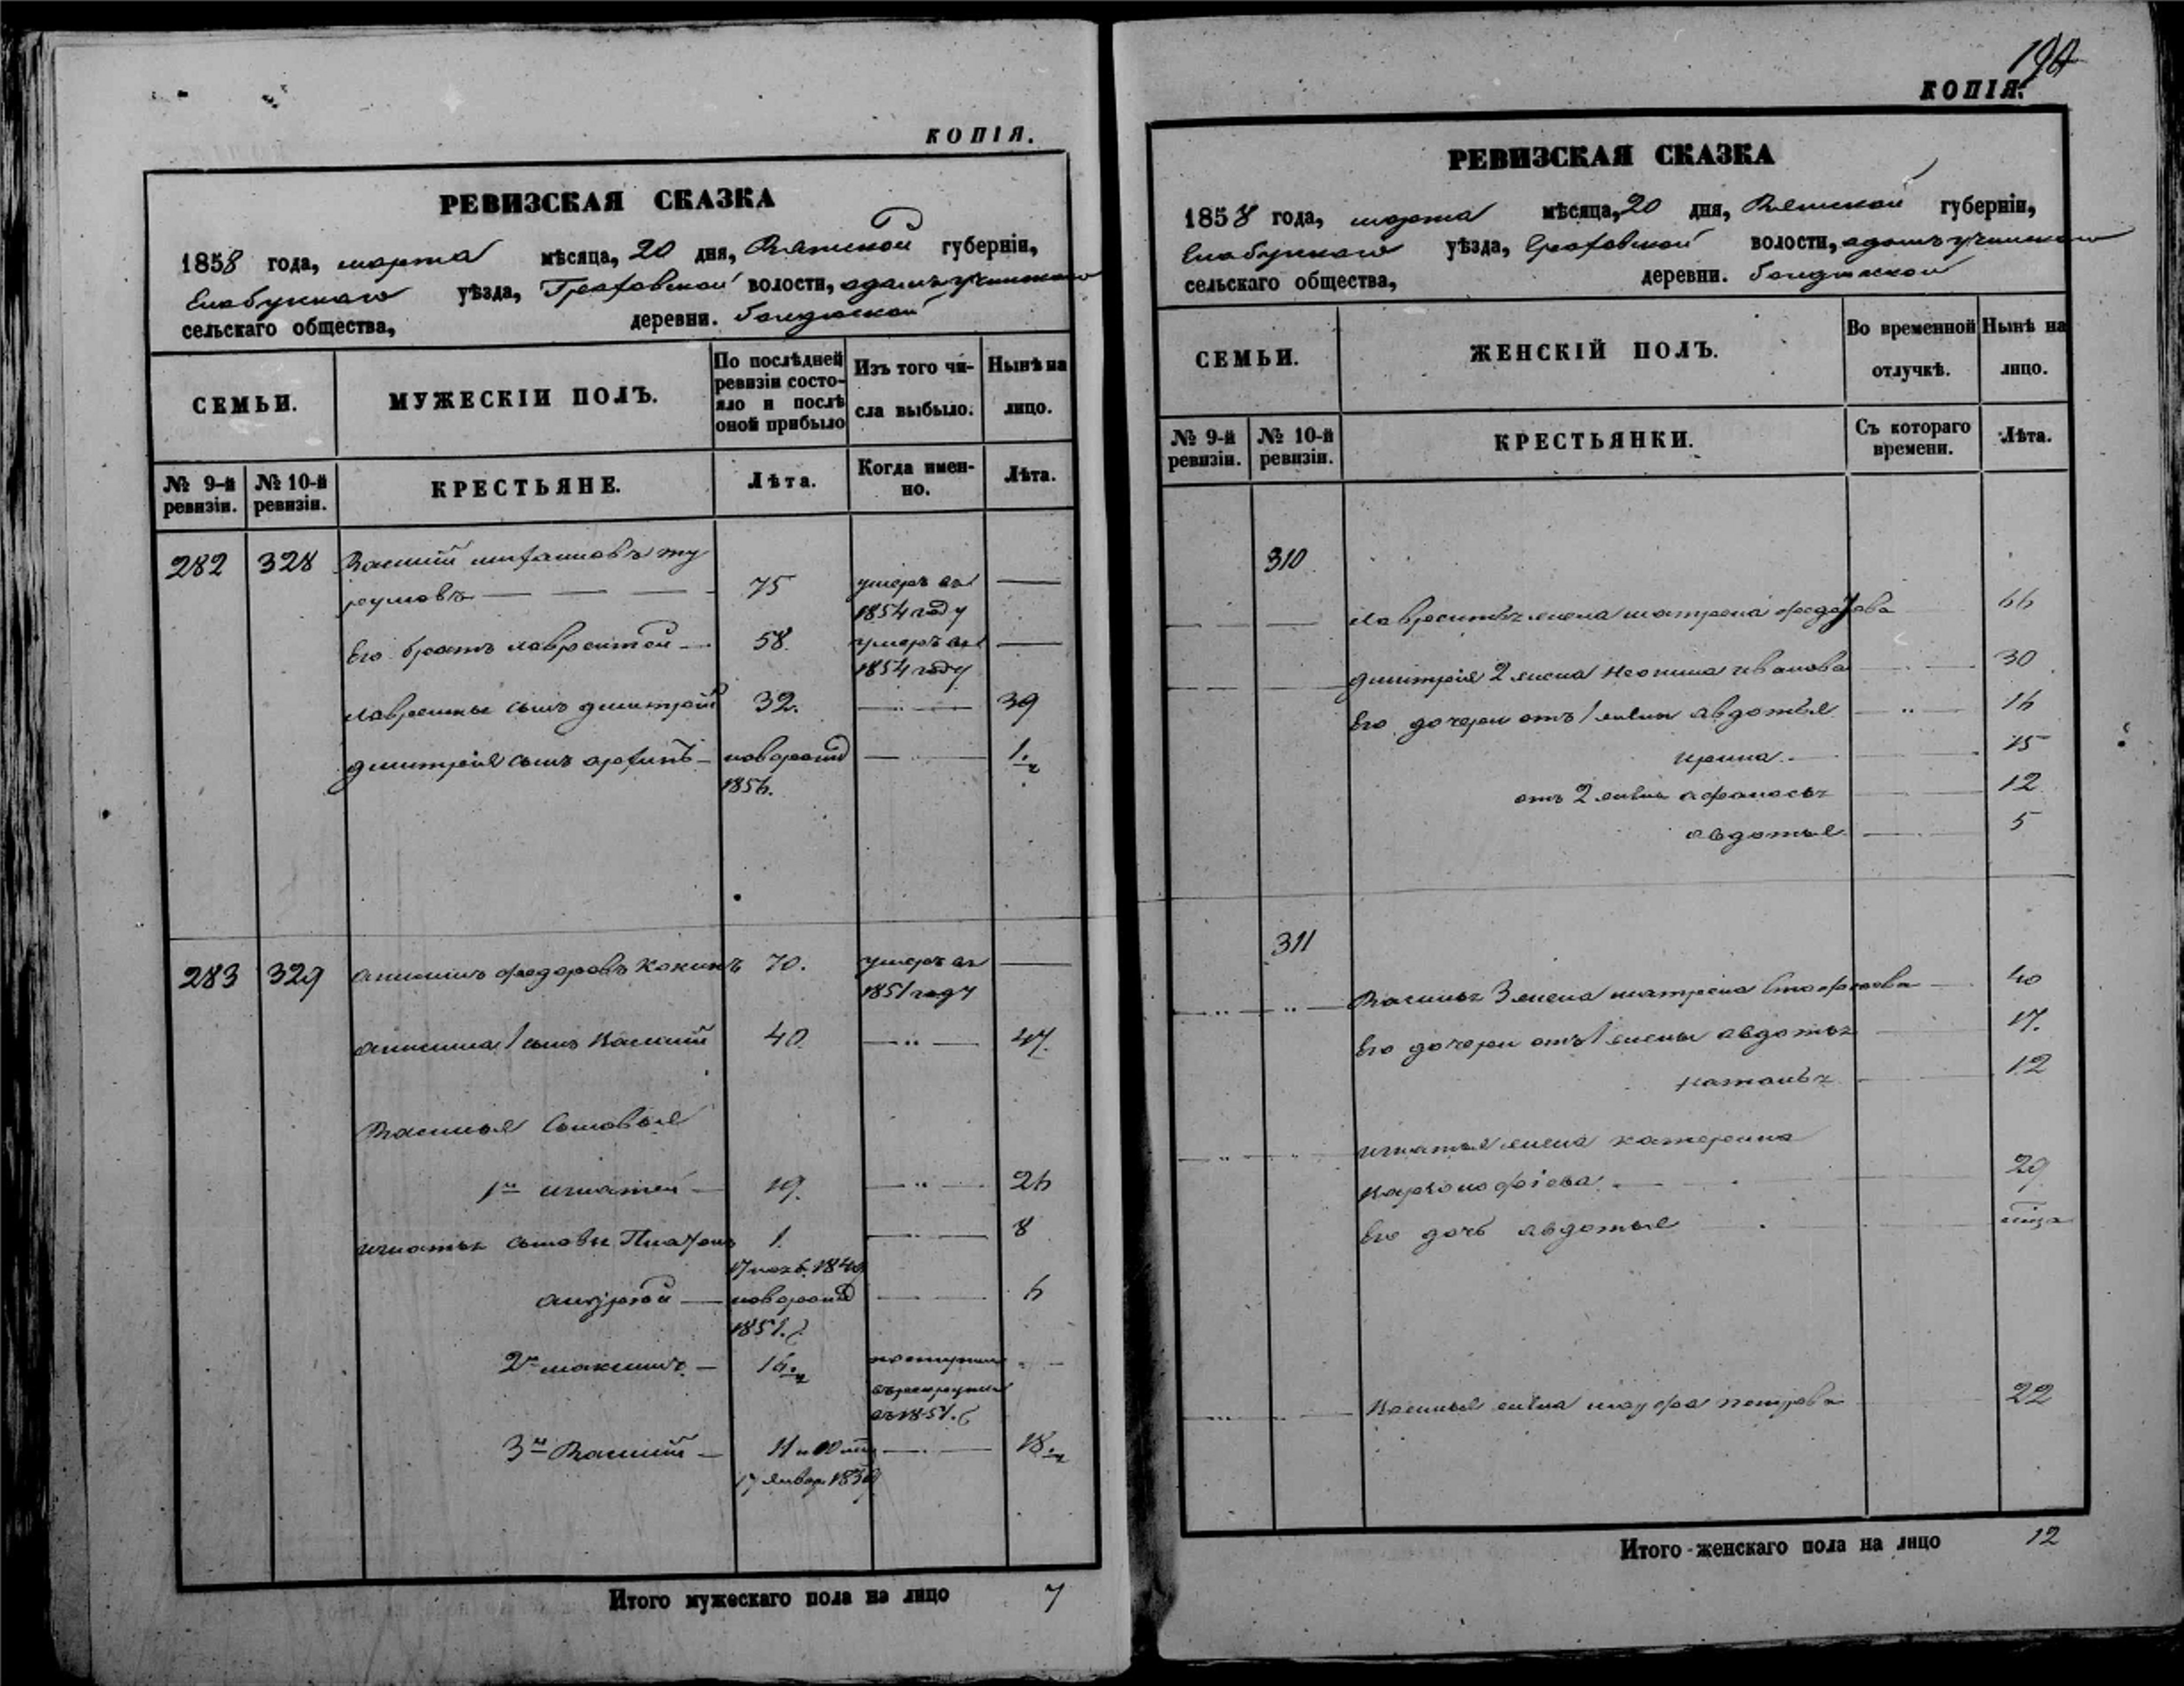 КОПІЯ.
РЕВИЗСКАЯ СКАЗКА
1858 года, марта мѣсяца, 20 дня, Вятской губерніи,
Елабужскаго уѣзда, Граховской волости,
сельскаго общества, деревни.
СЕМЬИ. МУЖЕСКІЙ ПОЛЪ. По послѣдней ревизіи состояло и послѣ оной прибыло Изъ того числа выбыло. Нынѣ на лицо.
№ 9-й ревизіи. № 10-й ревизіи. КРЕСТЬЯНЕ. Лѣта. Когда именно. Лѣта.
282 328 Василий
75 умеръ въ
1854 году
Его братъ лаврентей 58. умеръ въ
1854 году
лаврентья сынъ дмитрей 32. 39
дмитрея сынъ архипъ новорожд 1.
1856.
283 329 анисимъ федоровъ кокинъ 70. умеръ въ
1851 году
анисима 1 сынъ Василий 40. 47.
Василья сыновья
1й игнатей 19. 26
игнатья сыновья Платонъ 1. 8
новорожд 6
1851.
2й максимъ 16.
въ 1851.
3й Василий 18.
Итого мужескаго пола на лицо 7
194
КОПІЯ.
РЕВИЗСКАЯ СКАЗКА
1858 года, марта мѣсяца, 20 дня, Вятской губерніи,
Елабужскаго уѣзда, Граховской волости,
сельскаго общества, деревни.
СЕМЬИ. ЖЕНСКІЙ ПОЛЪ. Во временной отлучкѣ. Нынѣ на лицо.
№ 9-й ревизіи. № 10-й ревизіи. КРЕСТЬЯНКИ. Съ котораго времени. Лѣта.
310
лаврентья жена матрена федорова 66
дмитрея 2 жена иванова 30
Его дочери отъ 1 жены авдотья 16
ирина 15
отъ 2 жены афанасья 12
авдотья 5
311
Василья 3 жена матрена 40
Его дочери отъ 1 жены авдотья 17.
наталья 12
игнатья жена катерина
29
Его дочь авдотья
Василья жена марфа петрова 22
Итого женскаго пола на лицо 12